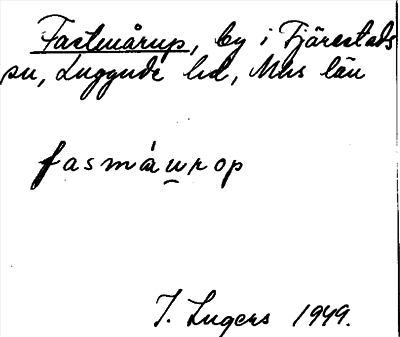 Fastmårup, by i Fjärestads
sn, Luggude hd, Mhs län
fasmåu̯rop
I. Lugers 1949.